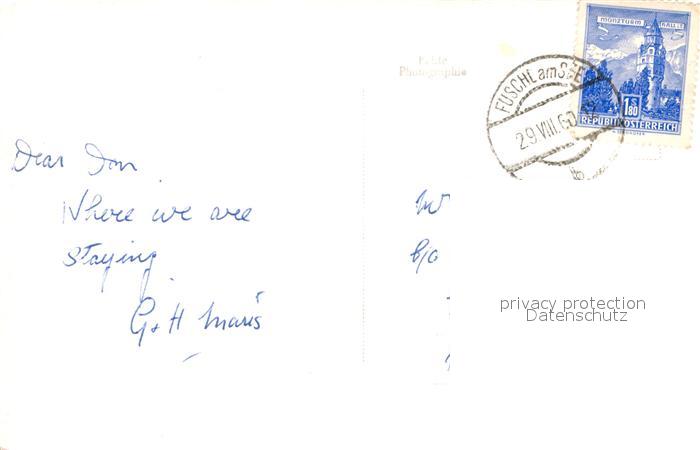 Echte
Photographie
MÜNZTURM HALL i. T.
FUSCHL am SEE
29.VIII.60
1 S 80
REPUBLIK ÖSTERREICH
Dear Don
Where we are
staying.
G + H Maris
c/o
privacy protection
Datenschutz